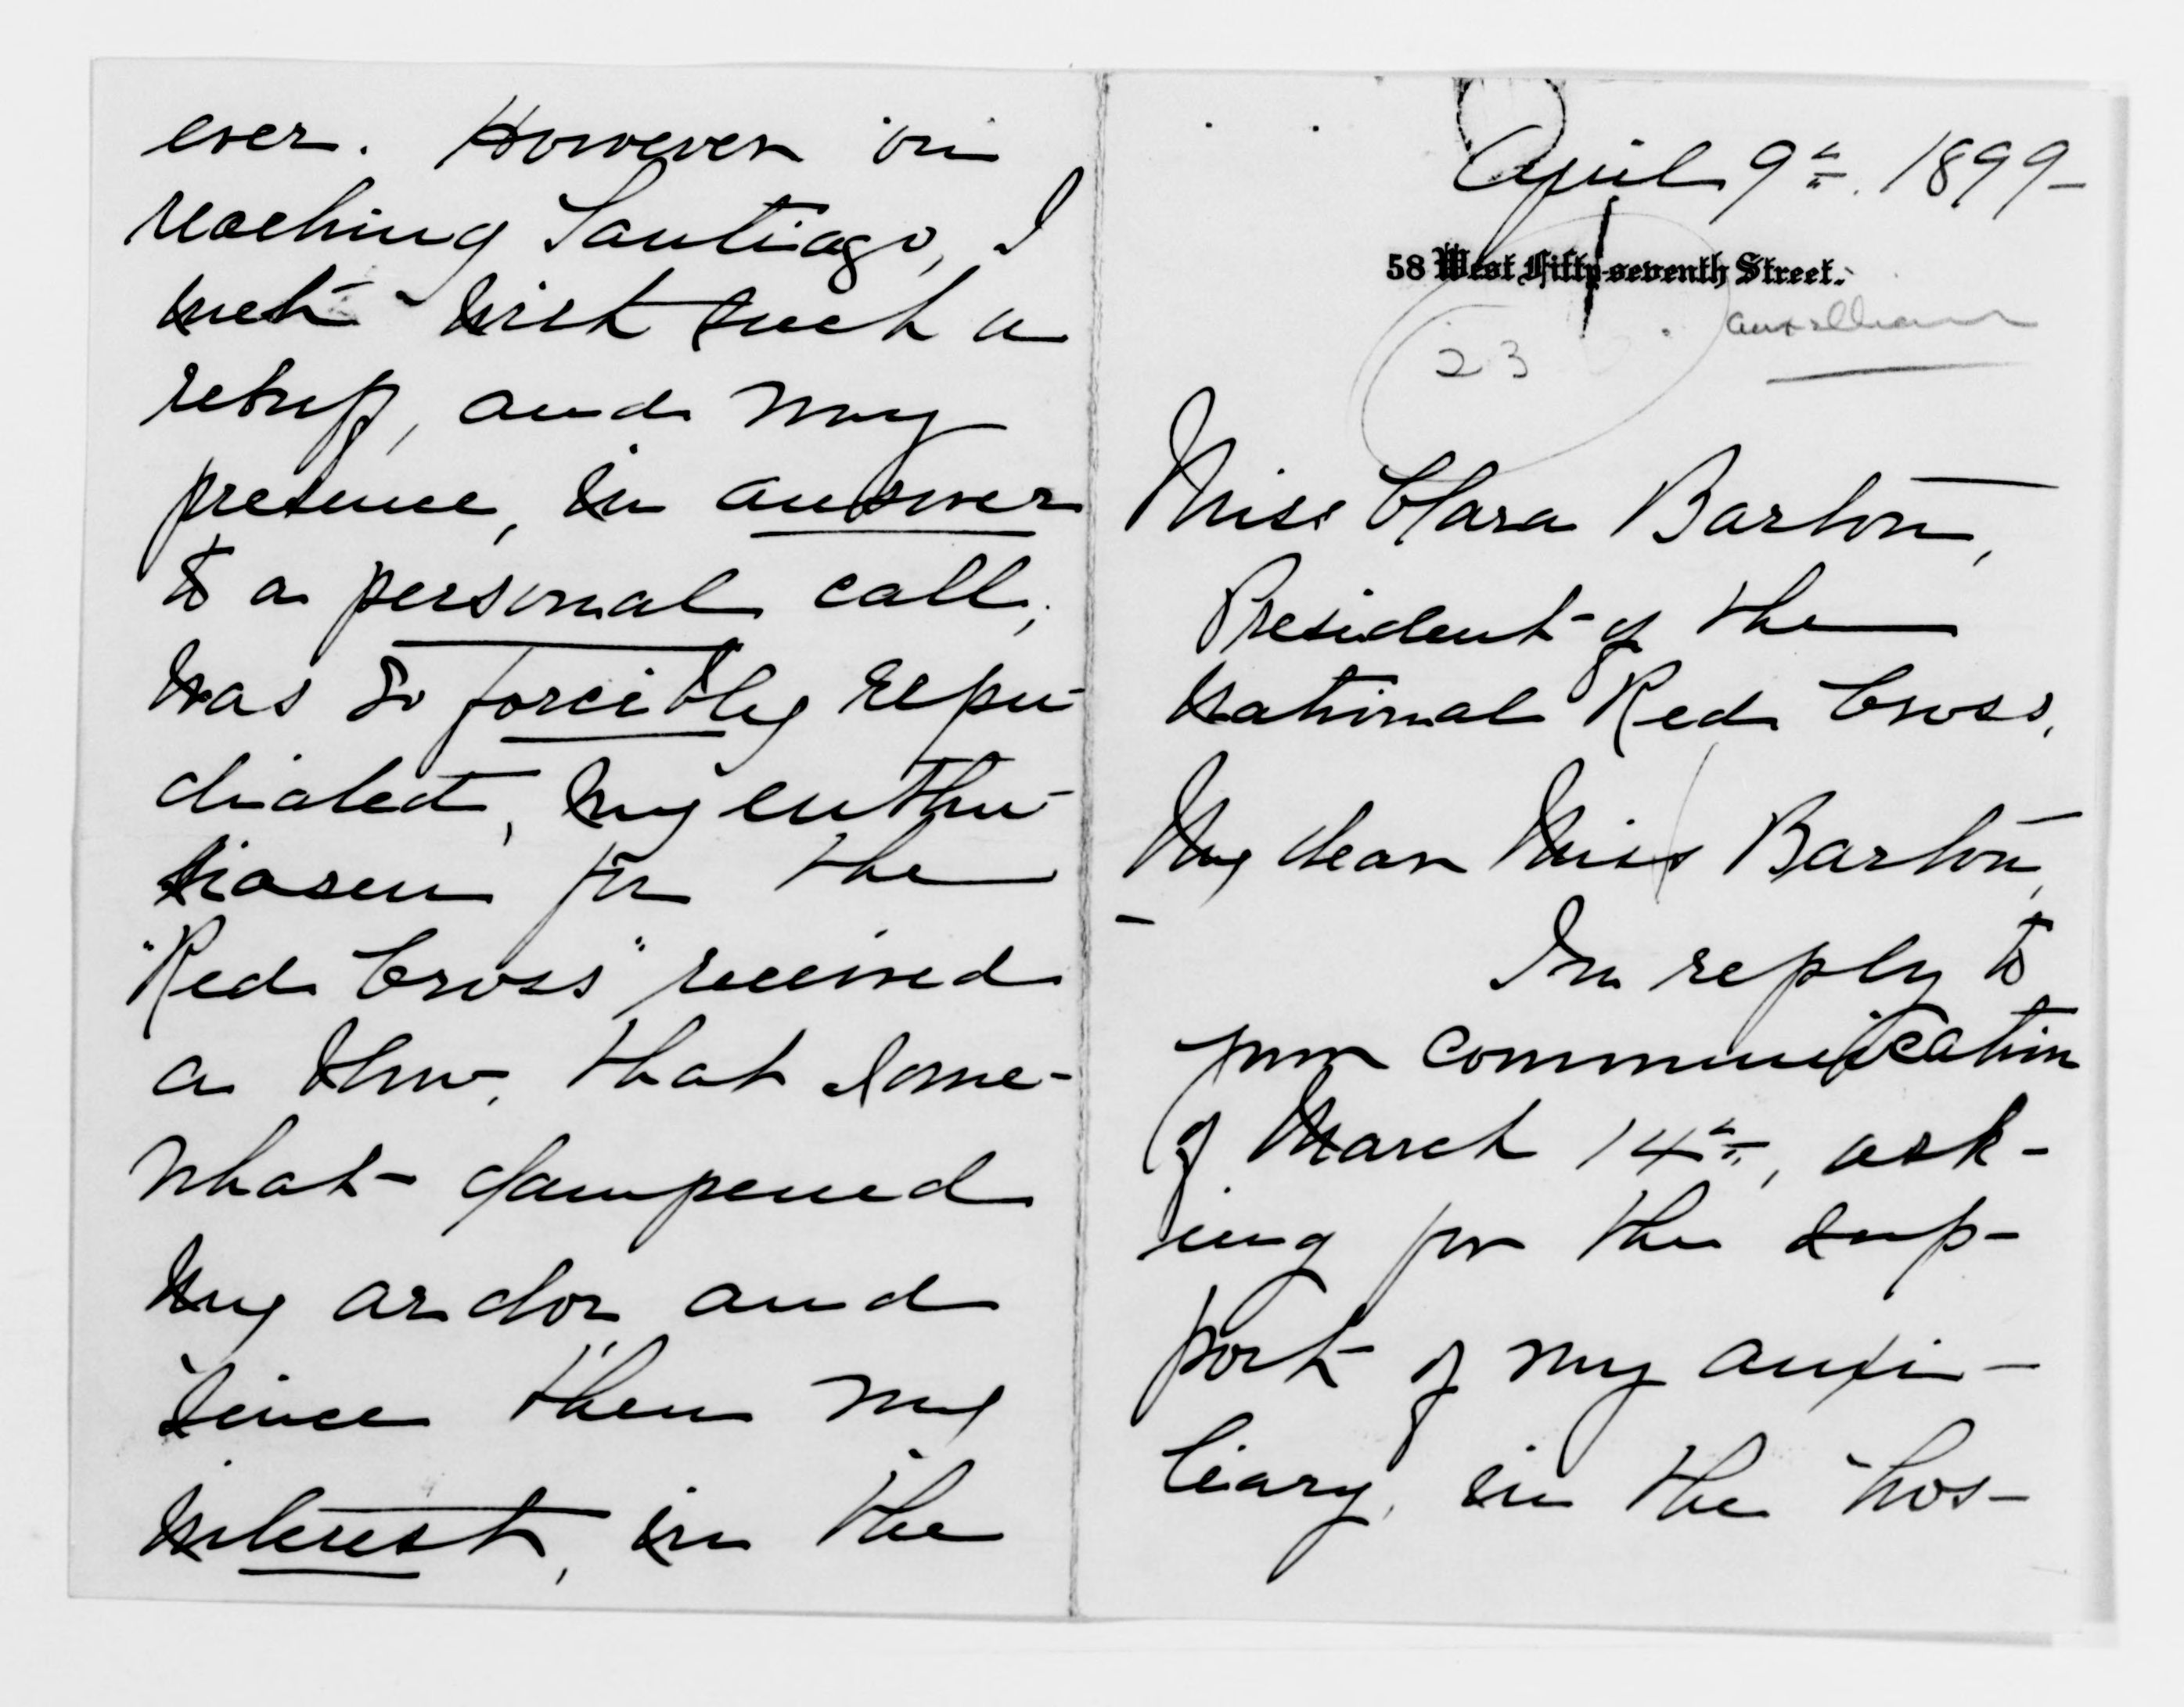 ever. However on
reaching Santiago, I
met with such a
rebuff, and my
presence, in answer
to a personal call,
was so forcibly repu-
diated, my enthu-
siasm for the
"Red Cross" received
a blow, that some-
what dampened
my ardor, and
since then my
interest, in the
April 9th. 1899-
58 West Fifty-seventh Street.
23
Miss Clara Barton,
President of the
National Red Cross,
My dear Miss Barton,
In reply to
your communication
of March 14th, ask-
ing for the sup-
port of my auxi-
liary, in the hos-